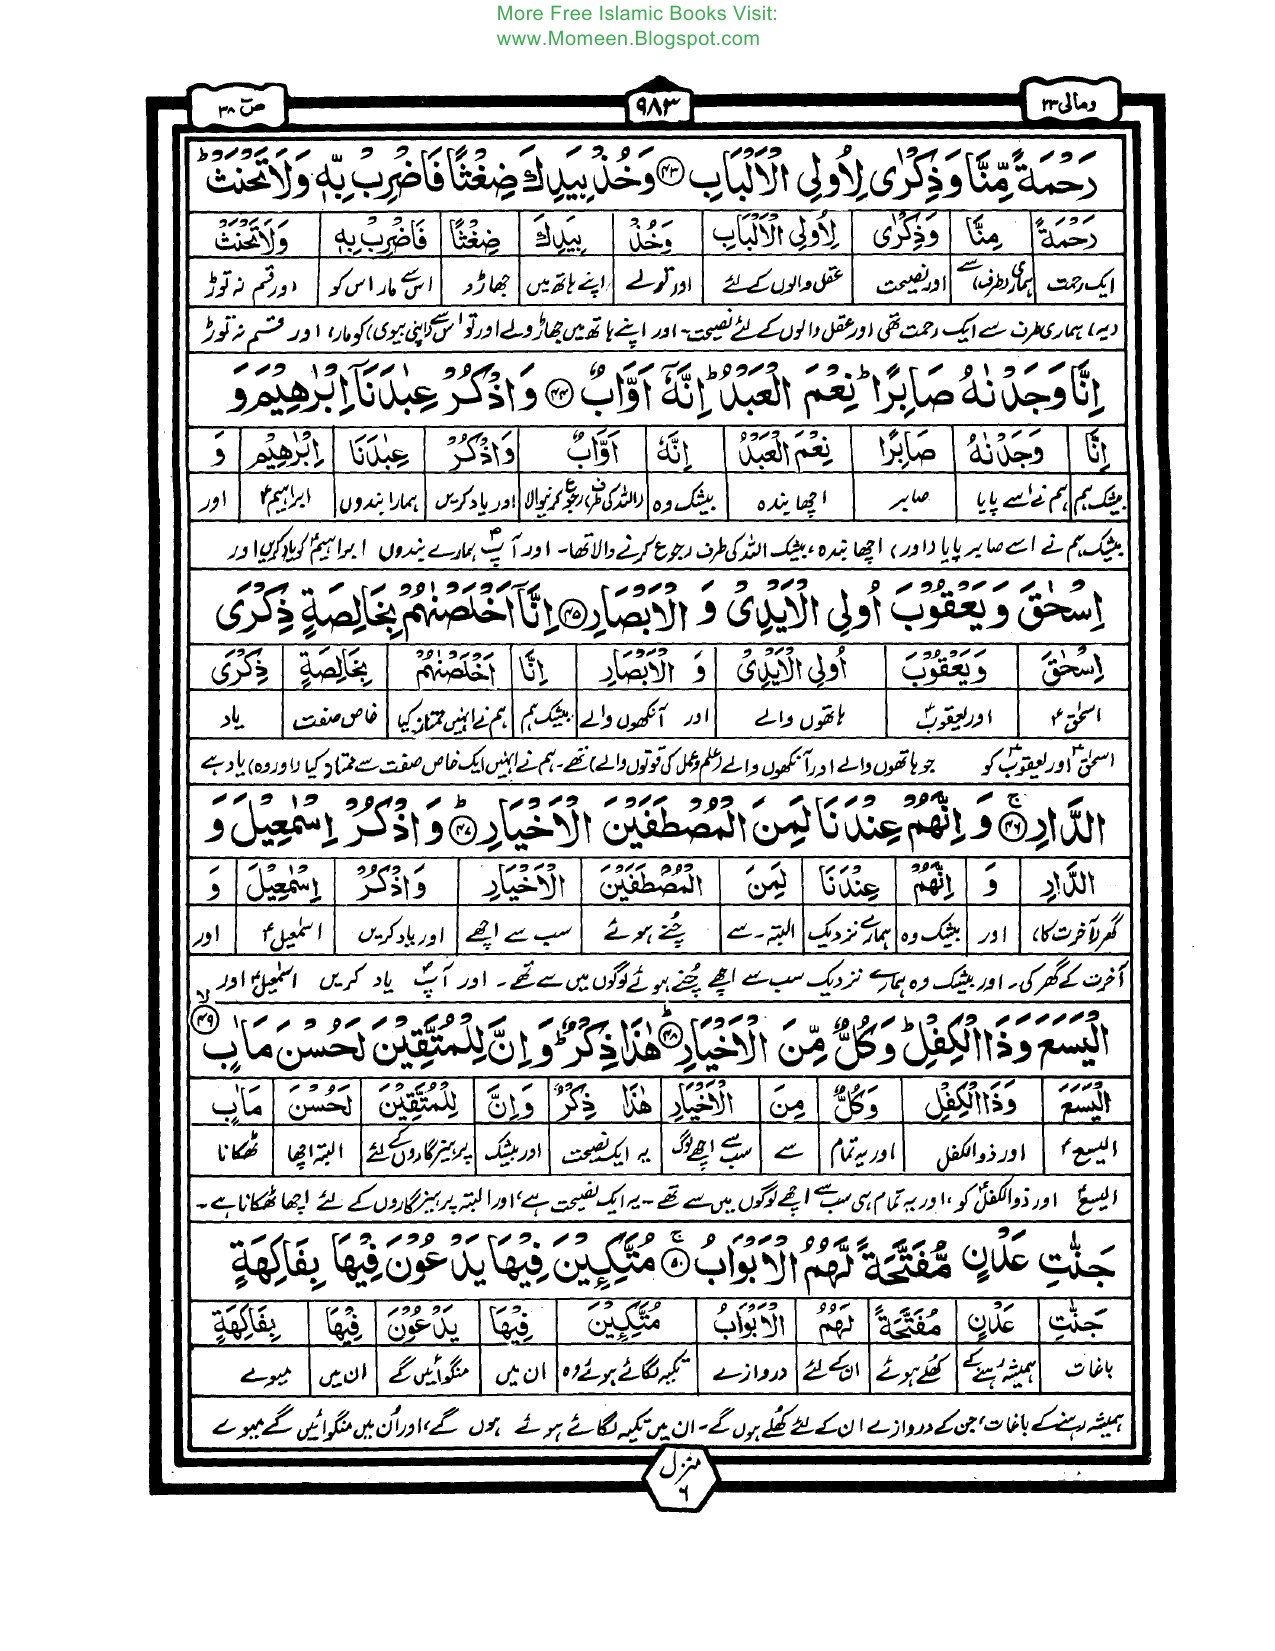 More Free Islamic Books Visit:
www.Momeen.Blogspot.com
ومالی ۲۳
۹۸۳
صٓ ۳۸
رَحْمَةً مِّنَّا وَذِكْرٰى لِاُولِي الْاَلْبَابِ ۴۳ وَخُذْ بِيَدِكَ ضِغْثًا فَاضْرِبْ بِّهٖ وَلَا تَحْنَثْ ؕ
رَحْمَةً مِنَّا وَذِكْرٰى لِاُولِي الْاَلْبَابِ وَخُذْ بِيَدِكَ ضِغْثًا فَاضْرِبْ بِهٖ وَلَا تَحْنَثْ
ایک رحمت ہماری (طرف) سے اور نصیحت عقل والوں کے لئے اور تولے اپنے ہاتھ میں جھاڑو اس سے مار اس کو اور قسم نہ توڑ
(یہ) ہماری طرف سے ایک رحمت تھی اور عقل والوں کے لئے نصیحت۔ اور اپنے ہاتھ میں جھاڑو لے اور تو اس سے (اپنی بیوی) کو مار، اور قسم نہ توڑ
اِنَّا وَجَدْنٰهُ صَابِرًا ؕ نِعْمَ الْعَبْدُ ؕ اِنَّهٗٓ اَوَّابٌ ۴۴ وَاذْكُرْ عِبٰدَنَآ اِبْرٰهِيْمَ وَ
اِنَّا وَجَدْنٰهُ صَابِرًا نِعْمَ الْعَبْدُ اِنَّهٗ اَوَّابٌ وَاذْكُرْ عِبٰدَنَا اِبْرٰهِيْمَ وَ
بیشک ہم ہم نے اسے پایا صابر اچھا بندہ بیشک وہ (اللہ کی طرف) رجوع کرنیوالا اور یاد کریں ہمارے بندوں ابراہیمؑ اور
بیشک ہم نے اسے صابر پایا (اور) اچھا بندہ، بیشک اللہ کی طرف رجوع کرنے والا تھا۔ اور آپؐ ہمارے بندوں ابراہیمؑ کو یاد کریں اور
اِسْحٰقَ وَيَعْقُوْبَ اُولِي الْاَيْدِيْ وَ الْاَبْصَارِ ۴۵ اِنَّآ اَخْلَصْنٰهُمْ بِخَالِصَةٍ ذِكْرَى
اِسْحٰقَ وَيَعْقُوْبَ اُولِي الْاَيْدِيْ وَ الْاَبْصَارِ اِنَّا اَخْلَصْنٰهُمْ بِخَالِصَةٍ ذِكْرَى
اسحٰقؑ اور یعقوبؑ ہاتھوں والے اور آنکھوں والے بیشک ہم ہم نے انہیں ممتاز کیا خاص صفت یاد
اسحٰقؑ اور یعقوبؑ کو جو ہاتھوں والے اور آنکھوں والے (علم و عمل کی قوتوں والے) تھے۔ ہم نے انہیں ایک خاص صفت سے ممتاز کیا (اور وہ) یاد ہے
الدَّارِ ۴۶ وَ اِنَّهُمْ عِنْدَنَا لَمِنَ الْمُصْطَفَيْنَ الْاَخْيَارِ ۴۷ وَاذْكُرْ اِسْمٰعِيْلَ وَ
الدَّارِ وَ اِنَّهُمْ عِنْدَنَا لَمِنَ الْمُصْطَفَيْنَ الْاَخْيَارِ وَاذْكُرْ اِسْمٰعِيْلَ وَ
گھر (آخرت کا) اور بیشک وہ ہمارے نزدیک البتہ۔ سے چُنے ہوئے سب سے اچھے اور یاد کریں اسمٰعیلؑ اور
آخرت کے گھر کی۔ اور بیشک وہ ہمارے نزدیک سب سے اچھے چُنے ہوئے لوگوں میں سے تھے۔ اور آپؐ یاد کریں اسمٰعیلؑ اور
الْيَسَعَ وَذَا الْكِفْلِ ؕ وَكُلٌّ مِّنَ الْاَخْيَارِ ۴۸ هٰذَا ذِكْرٌ ؕ وَاِنَّ لِلْمُتَّقِيْنَ لَحُسْنَ مَاٰبٍ ۴۹
الْيَسَعَ وَذَا الْكِفْلِ وَكُلٌّ مِنَ الْاَخْيَارِ هٰذَا ذِكْرٌ وَاِنَّ لِلْمُتَّقِيْنَ لَحُسْنَ مَاٰبٍ
الیسعؑ اور ذوالکفل اور یہ تمام سے سب سے اچھے لوگ یہ ایک نصیحت اور بیشک پرہیزگاروں کے لئے البتہ اچھا ٹھکانا
الیسعؑ اور ذوالکفلؑ کو، اور یہ تمام ہی سب سے اچھے لوگوں میں سے تھے۔ یہ ایک نصیحت ہے، اور البتہ پرہیزگاروں کے لئے اچھا ٹھکانا ہے۔
جَنّٰتِ عَدْنٍ مُّفَتَّحَةً لَّهُمُ الْاَبْوَابُ ۵۰ مُتَّكِـِٕيْنَ فِيْهَا يَدْعُوْنَ فِيْهَا بِفَاكِهَةٍ
جَنّٰتِ عَدْنٍ مُفَتَّحَةً لَهُمُ الْاَبْوَابُ مُتَّكِـِٕيْنَ فِيْهَا يَدْعُوْنَ فِيْهَا بِفَاكِهَةٍ
باغات ہمیشہ رہنے کے کھلے ہوئے ان کے لئے دروازے تکیہ لگائے ہوئے وہ ان میں منگوائیں گے ان میں میوے
ہمیشہ رہنے کے باغات، جن کے دروازے ان کے لئے کھلے ہوں گے۔ ان میں تکیہ لگائے ہوئے ہوں گے، اور اُن میں منگوائیں گے میوے
منزل ۶